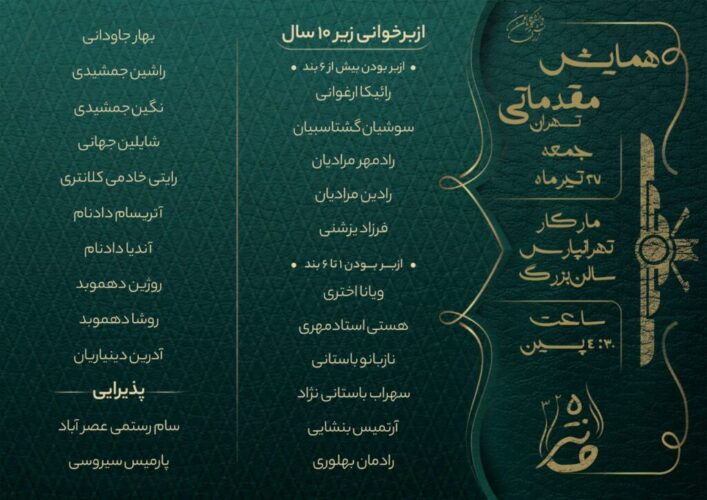 همایش
مقدماتی
تهران
جمعه
۲۷ تیر ماه
مارکار
تهرانپارس
سالن بزرگ
ساعت
۴:۳۰ پسین
ازبرخوانی زیر ۱۰ سال
• ازبر بودن بیش از ۶ بند •
رائیکا ارغوانی
سوشیان گشتاسبیان
رادمهر مرادیان
رادین مرادیان
فرزاد یزشنی
• ازبــر بــودن ۱ تا ۶ بند •
ویانا اختری
هستی استادمهری
نازبانو باستانی
سهراب باستانی نژاد
آرتمیس بنشایی
رادمان بهلوری
بهار جاودانی
راشین جمشیدی
نگین جمشیدی
شایلین جهانی
رایتی خادمی کلانتری
آتریسام دادنام
آندیا دادنام
روژین دهموبد
روشا دهموبد
آدرین دینیاریان
پذیرایی
سام رستمی عصر آباد
پارمیس سیروسی